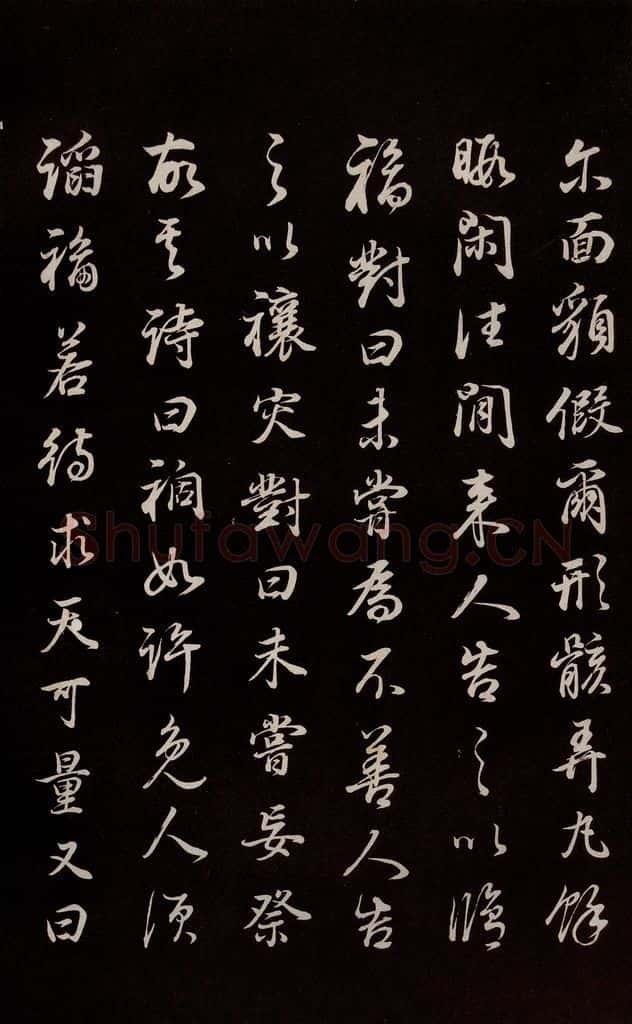 尓面貌假爾形骸弄丸餘
暇閑往閒来人告之以脩
福對曰未嘗為不善人告
之以禳灾對曰未嘗妄祭
故其詩曰禍如許免人須
諂福若待求天可量又曰
Shufawang.CN